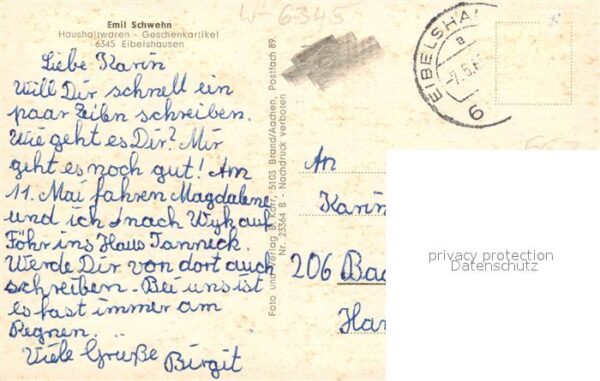 W-6345
Emil Schwehn
Haushaltwaren - Geschenkartikel
6345 Eibelshausen
Liebe Karin
Will Dir schnell ein
paar Zeilen schreiben.
Wie geht es Dir? Mir
geht es noch gut! Am
11. Mai fahren Magdalene
und ich nach Wyk auf
Föhr ins Haus Tanneck.
Werde Dir von dort auch
schreiben. Bei uns ist
es fast immer am
Regnen.
Viele Grüße Birgit
Foto und Verlag B. Korr, 5103 Brand/Aachen, Postfach 89
Nr. 23364 B - Nachdruck verboten
EIBELSHAU
a
-7.5.6
9
An
Karin
206 Bad
Ham
privacy protection
Datenschutz